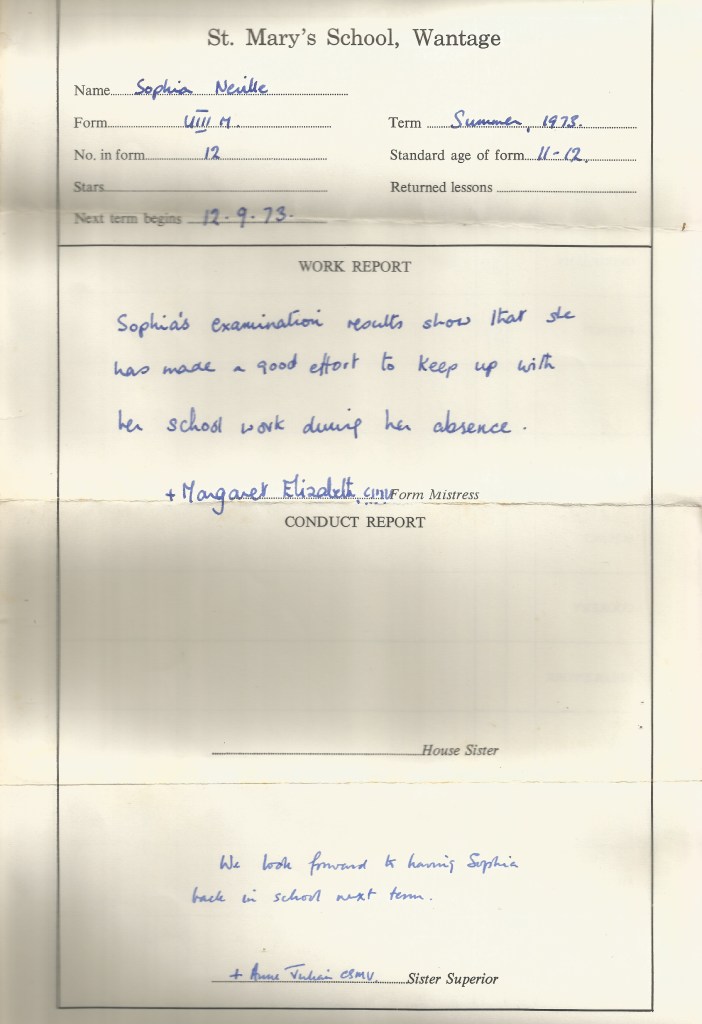 St. Mary's School, Wantage
Name Sophia Neville
Form UIII M.
Term Summer, 1973.
No. in form 12
Standard age of form 11-12.
Stars
Returned lessons
Next term begins 12.9.73.
WORK REPORT
Sophia's examination results show that she
has made a good effort to keep up with
her school work during her absence.
+ Margaret Elizabeth, CSMV Form Mistress
CONDUCT REPORT
House Sister
We look forward to having Sophia
back in school next term.
+ Anne Julian CSMV. Sister Superior